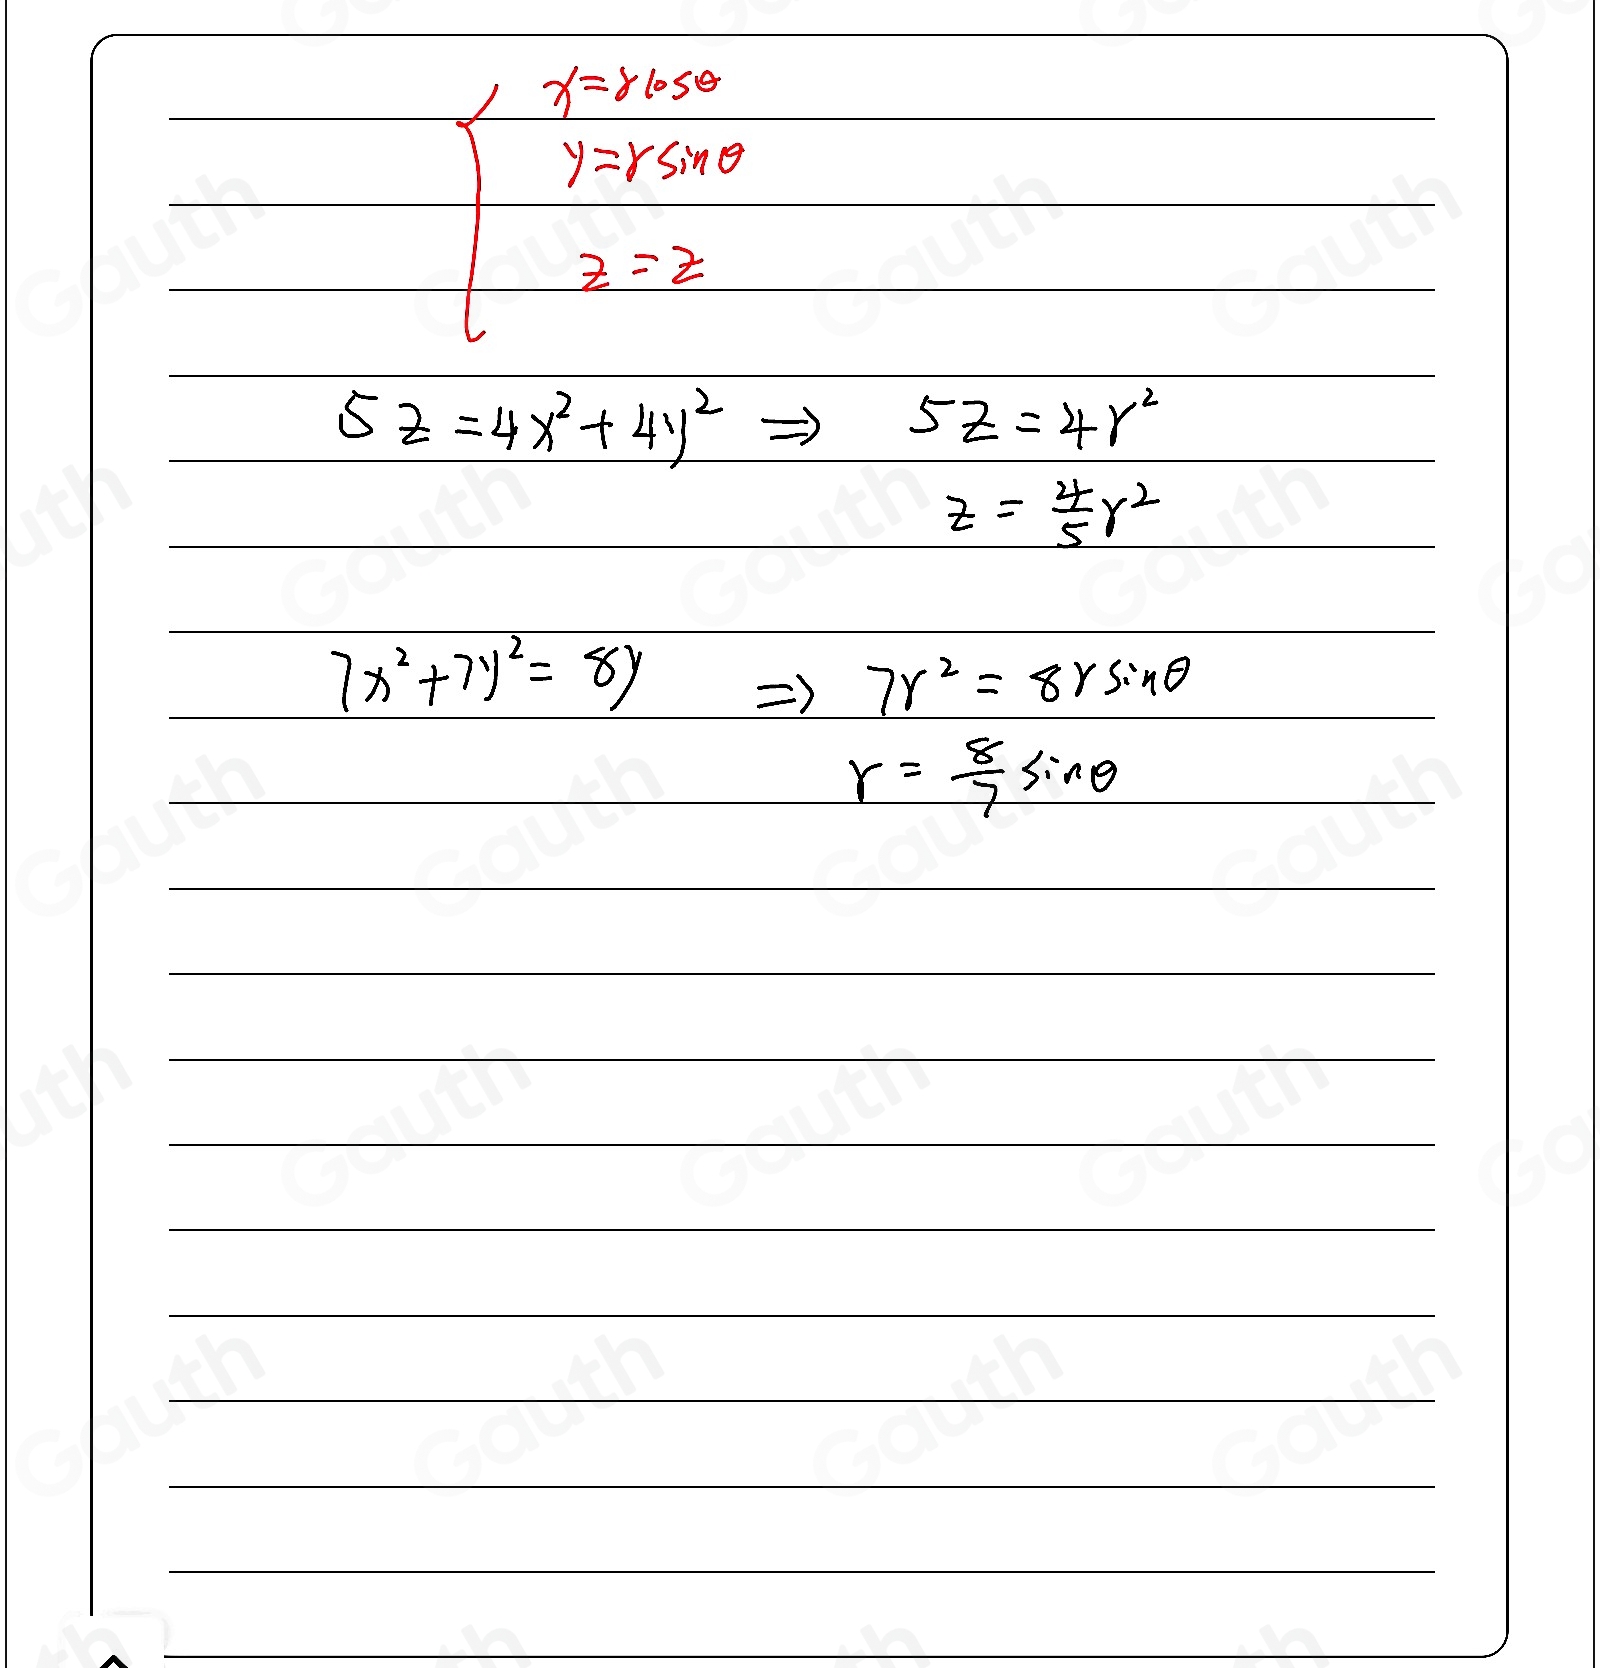 x=rcosθ
y=rsinθ
z=z
5z=4x²+4y² ⇒ 5z=4r²
z=4/5r²
7x²+7y²=8y ⇒ 7r²=8rsinθ
r=8/7sinθ